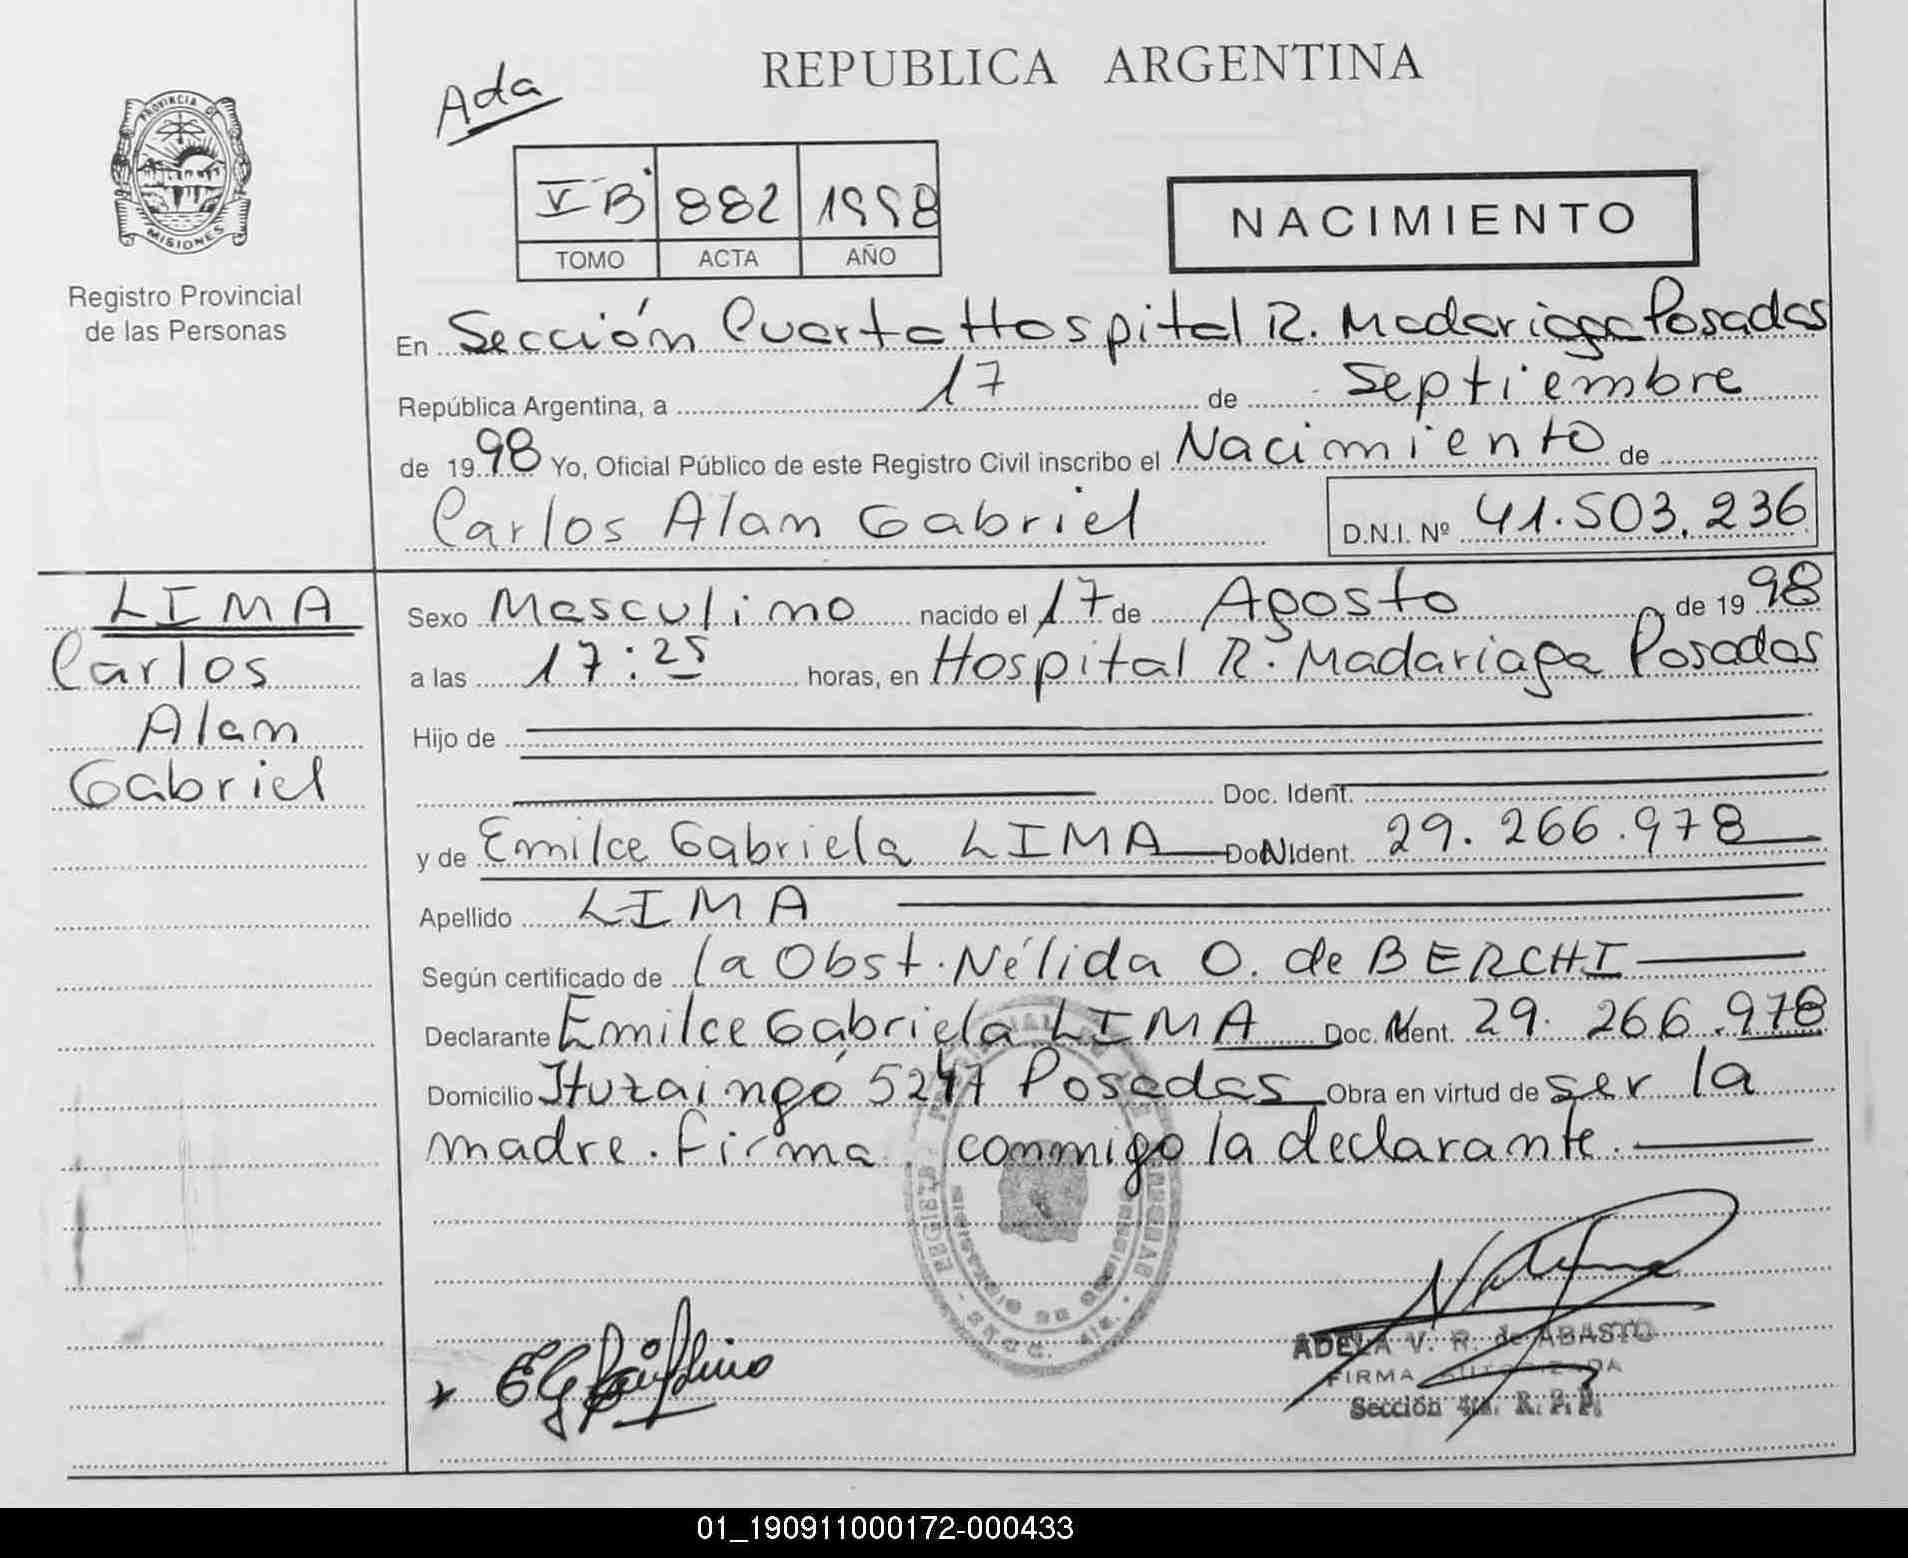 REPUBLICA ARGENTINA
Ada
PROVINCIA DE
MISIONES
Registro Provincial
de las Personas
V B 882 1998
TOMO ACTA AÑO
NACIMIENTO
En Sección Cuarta Hospital R. Madariaga Posadas
República Argentina, a 17 de Septiembre
de 19 98 Yo, Oficial Público de este Registro Civil inscribo el Nacimiento de
Carlos Alan Gabriel D.N.I. Nº 41.503.236
LIMA
Carlos
Alan
Gabriel
Sexo Masculino nacido el 17 de Agosto de 19 98
a las 17:25 horas, en Hospital R. Madariaga Posadas
Hijo de
Doc. Ident.
y de Emilce Gabriela LIMA DoNIdent. 29.266.978
Apellido LIMA
Según certificado de la Obst. Nélida O. de BERCHI
Declarante Emilce Gabriela LIMA Doc. Ident. 29.266.978
Domicilio Ituzaingó 5247 Posadas Obra en virtud de ser la
madre. firma conmigo la declarante.
ADELA V. R. de ABASTO
FIRMA AUTORIZADA
Sección 4ta. R. P. P.
01_190911000172-000433